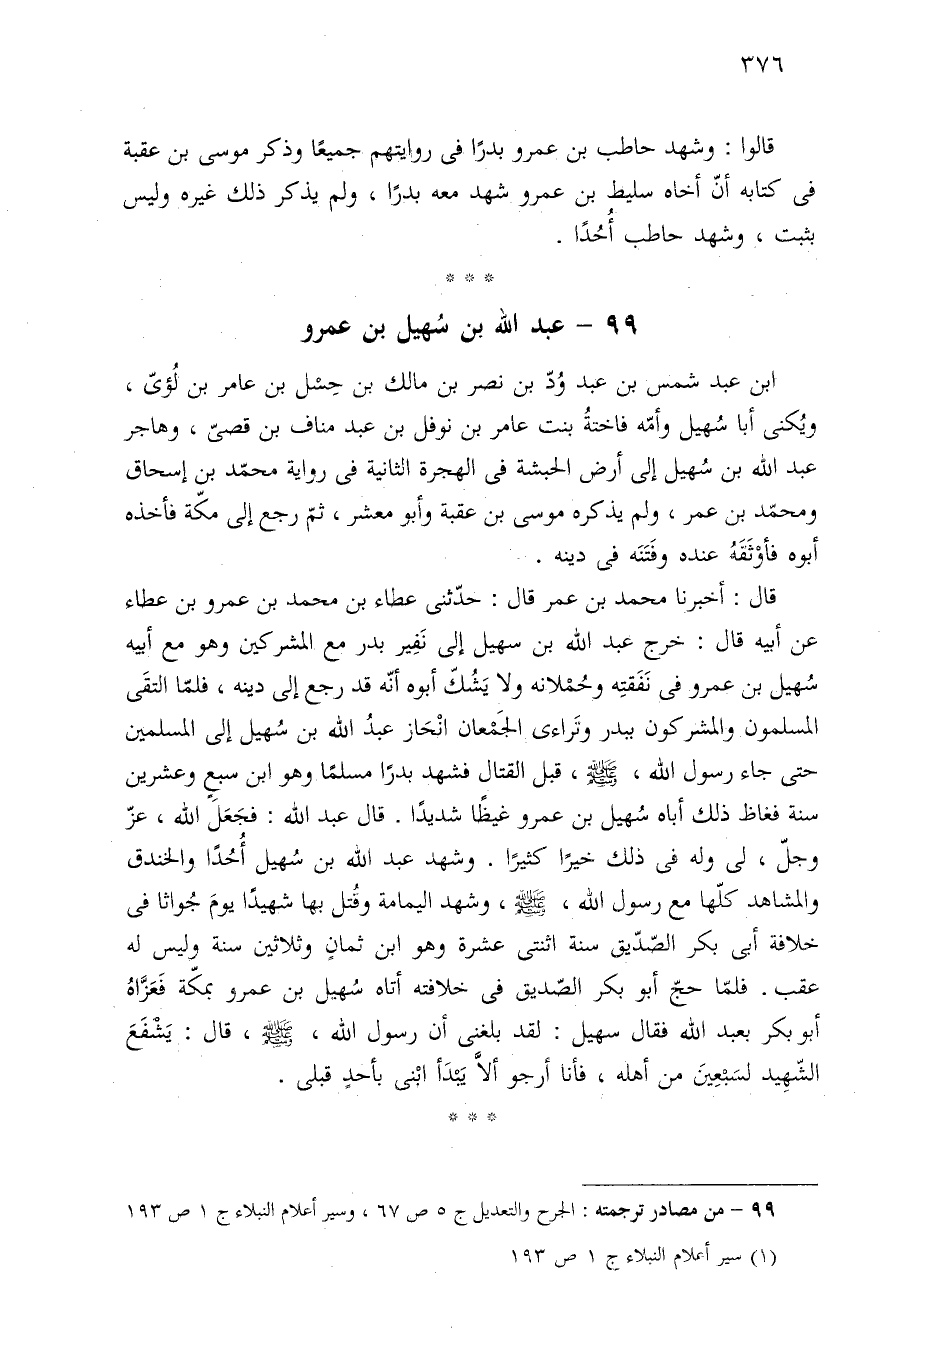 ٣٧٦
قالوا : وشهد حاطب بن عمرو بدرًا فى روايتهم جميعًا وذكر موسى بن عقبة
فى كتابه أنّ أخاه سليط بن عمرو شهد معه بدرًا ، ولم يذكر ذلك غيره وليس
بثبت ، وشهد حاطب أُحُدًا .
* * *
٩٩ – عبد الله بن سُهيل بن عمرو
ابن عبد شمس بن عبد وُدّ بن نصر بن مالك بن حِسْل بن عامر بن لُؤىّ ،
ويُكنى أبا سُهيل وأمّه فاختةُ بنت عامر بن نوفل بن عبد مناف بن قصىّ ، وهاجر
عبد الله بن سُهيل إلى أرض الحبشة فى الهجرة الثانية فى رواية محمّد بن إسحاق
ومحمّد بن عمر ، ولم يذكره موسى بن عقبة وأبو معشر ، ثمّ رجع إلى مكّة فأخذه
أبوه فأوْثَقَهُ عنده وفَتَنَه فى دينه .
قال : أخبرنا محمد بن عمر قال : حدّثنى عطاء بن محمد بن عمرو بن عطاء
عن أبيه قال : خرج عبد الله بن سهيل إلى نَفِير بدر مع المشركين وهو مع أبيه
سُهيل بن عمرو فى نَفَقتِه وحُمْلانه ولا يَشُكّ أبوه أنّه قد رجع إلى دينه ، فلمّا التقَى
المسلمون والمشركون ببدر وتَراءى الجَمْعان انْحَاز عبدُ الله بن سُهيل إلى المسلمين
حتى جاء رسول الله ، ﷺ ، قبل القتال فشهد بدرًا مسلمًا وهو ابن سبعٍ وعشرين
سنة فغاظ ذلك أباه سُهيل بن عمرو غيظًا شديدًا . قال عبد الله : فجَعَلَ الله ، عزّ
وجلّ ، لى وله فى ذلك خيرًا كثيرًا . وشهد عبد الله بن سُهيل أُحُدًا والخندق
والمشاهد كلّها مع رسول الله ، ﷺ ، وشهد اليمامة وقُتل بها شهيدًا يومَ جُواثا فى
خلافة أبى بكر الصّدّيق سنة اثنتى عشرة وهو ابن ثمانٍ وثلاثين سنة وليس له
عقب . فلمّا حجّ أبو بكر الصّديق فى خلافته أتاه سُهيل بن عمرو بمكّة فَعَزَّاهُ
أبو بكر بعبد الله فقال سهيل : لقد بلغنى أن رسول الله ، ﷺ ، قال : يَشْفَعَ
الشّهِيد لسَبْعِينَ من أهله ، فأنا أرجو ألاَّ يَبْدَأ ابْنى بأحدٍ قبلى .
* * *
٩٩ – من مصادر ترجمته : الجرح والتعديل ج ٥ ص ٦٧ ، وسير أعلام النبلاء ج ١ ص ١٩٣
(١) سير أعلام النبلاء ج ١ ص ١٩٣